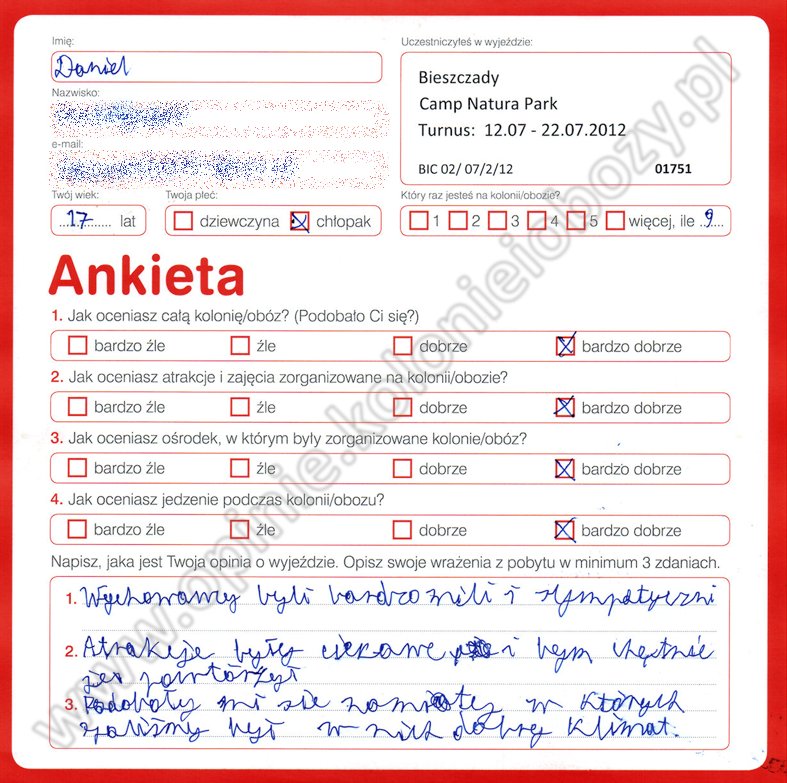 Imię:
Uczestniczyłeś w wyjeździe:
Daniel
Bieszczady
Camp Natura Park
Turnus: 12.07 - 22.07.2012
BIC 02/ 07/2/12 01751
Nazwisko:
e-mail:
Twój wiek:
Twoja płeć:
Który raz jesteś na kolonii/obozie?
17 lat
dziewczyna chłopak
1 2 3 4 5 więcej, ile 9
Ankieta
1. Jak oceniasz całą kolonię/obóz? (Podobało Ci się?)
bardzo źle źle dobrze bardzo dobrze
2. Jak oceniasz atrakcje i zajęcia zorganizowane na kolonii/obozie?
bardzo źle źle dobrze bardzo dobrze
3. Jak oceniasz ośrodek, w którym były zorganizowane kolonie/obóz?
bardzo źle źle dobrze bardzo dobrze
4. Jak oceniasz jedzenie podczas kolonii/obozu?
bardzo źle źle dobrze bardzo dobrze
Napisz, jaka jest Twoja opinia o wyjeździe. Opisz swoje wrażenia z pobytu w minimum 3 zdaniach.
1. Wychowawcy byli bardzo mili i sympatyczni
2. Atrakcje były ciekawe i bym chętnie
jes powtórzył
3. Podobały mi sie namioty w których
spaliśmy był w nich dobry klimat.
www.opinie.kolonieiobozy.pl